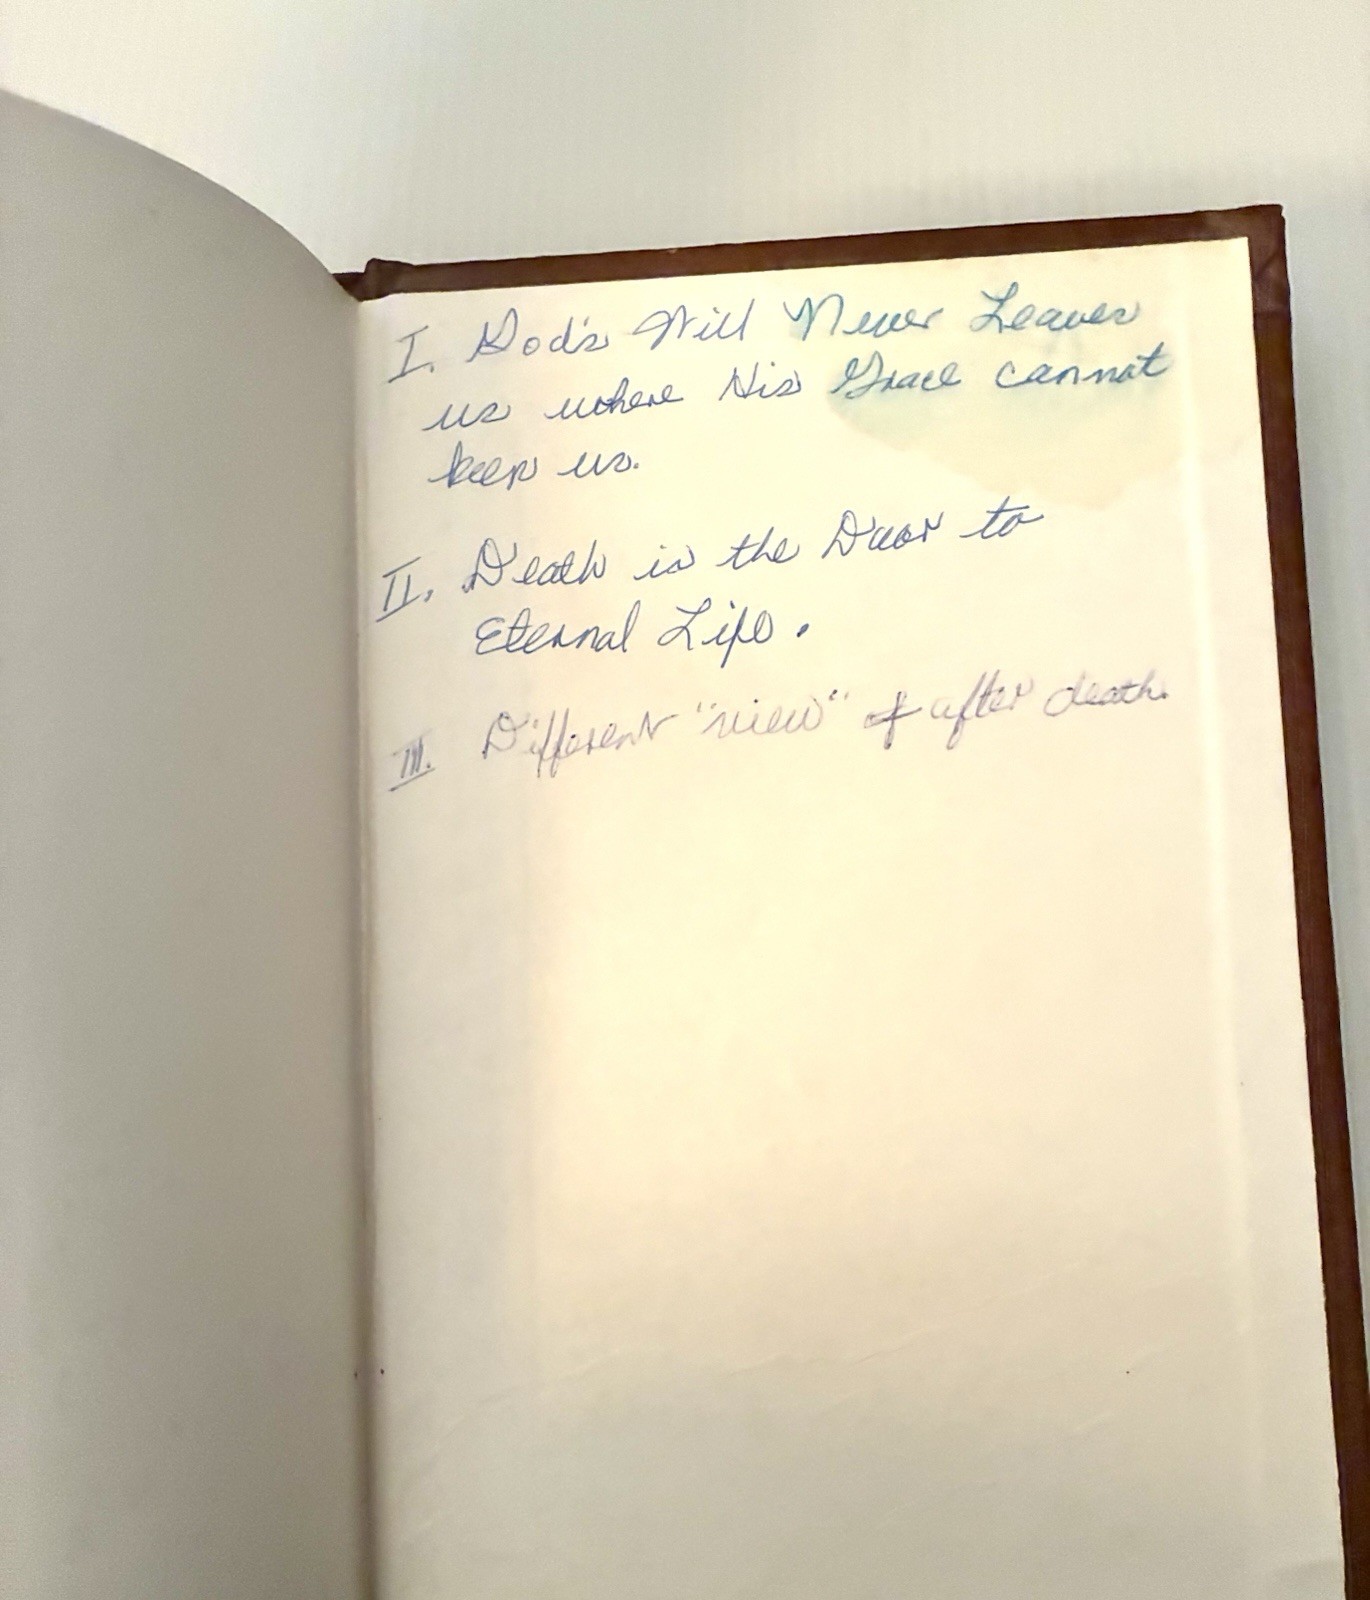 I. God's Will Never Leaves
us where His Grace cannot
keep us.
II. Death is the Door to
Eternal Life.
III. Different "view" of after death.